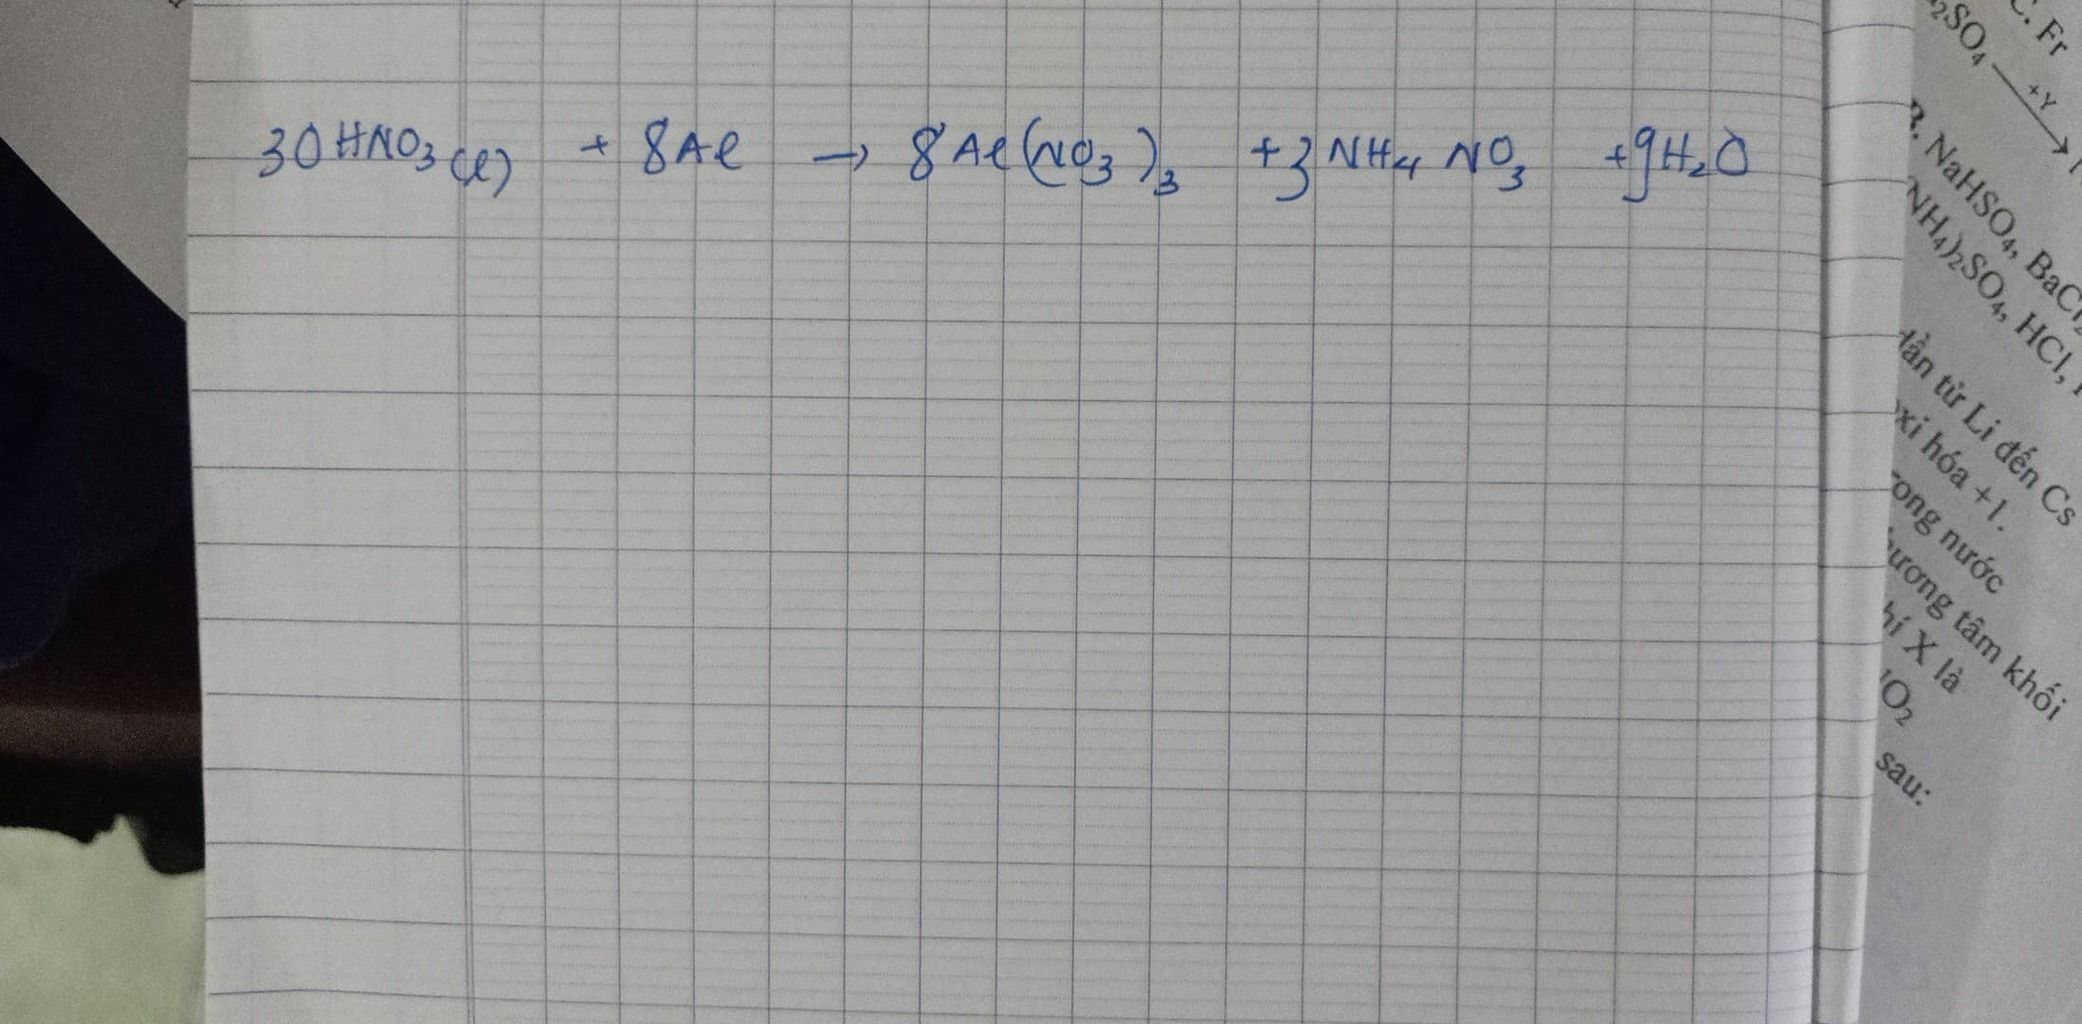 30HNO₃(l) + 8Al → 8Al(NO₃)₃ + 3NH₄NO₃ + 9H₂O
C. Fr
₂SO₄ +Y
B. NaHSO₄, BaCl₂
NH₄)₂SO₄, HCl,
dần từ Li đến Cs
oxi hóa +1.
rong nước
hương tâm khối
hí X là
O₂
sau: